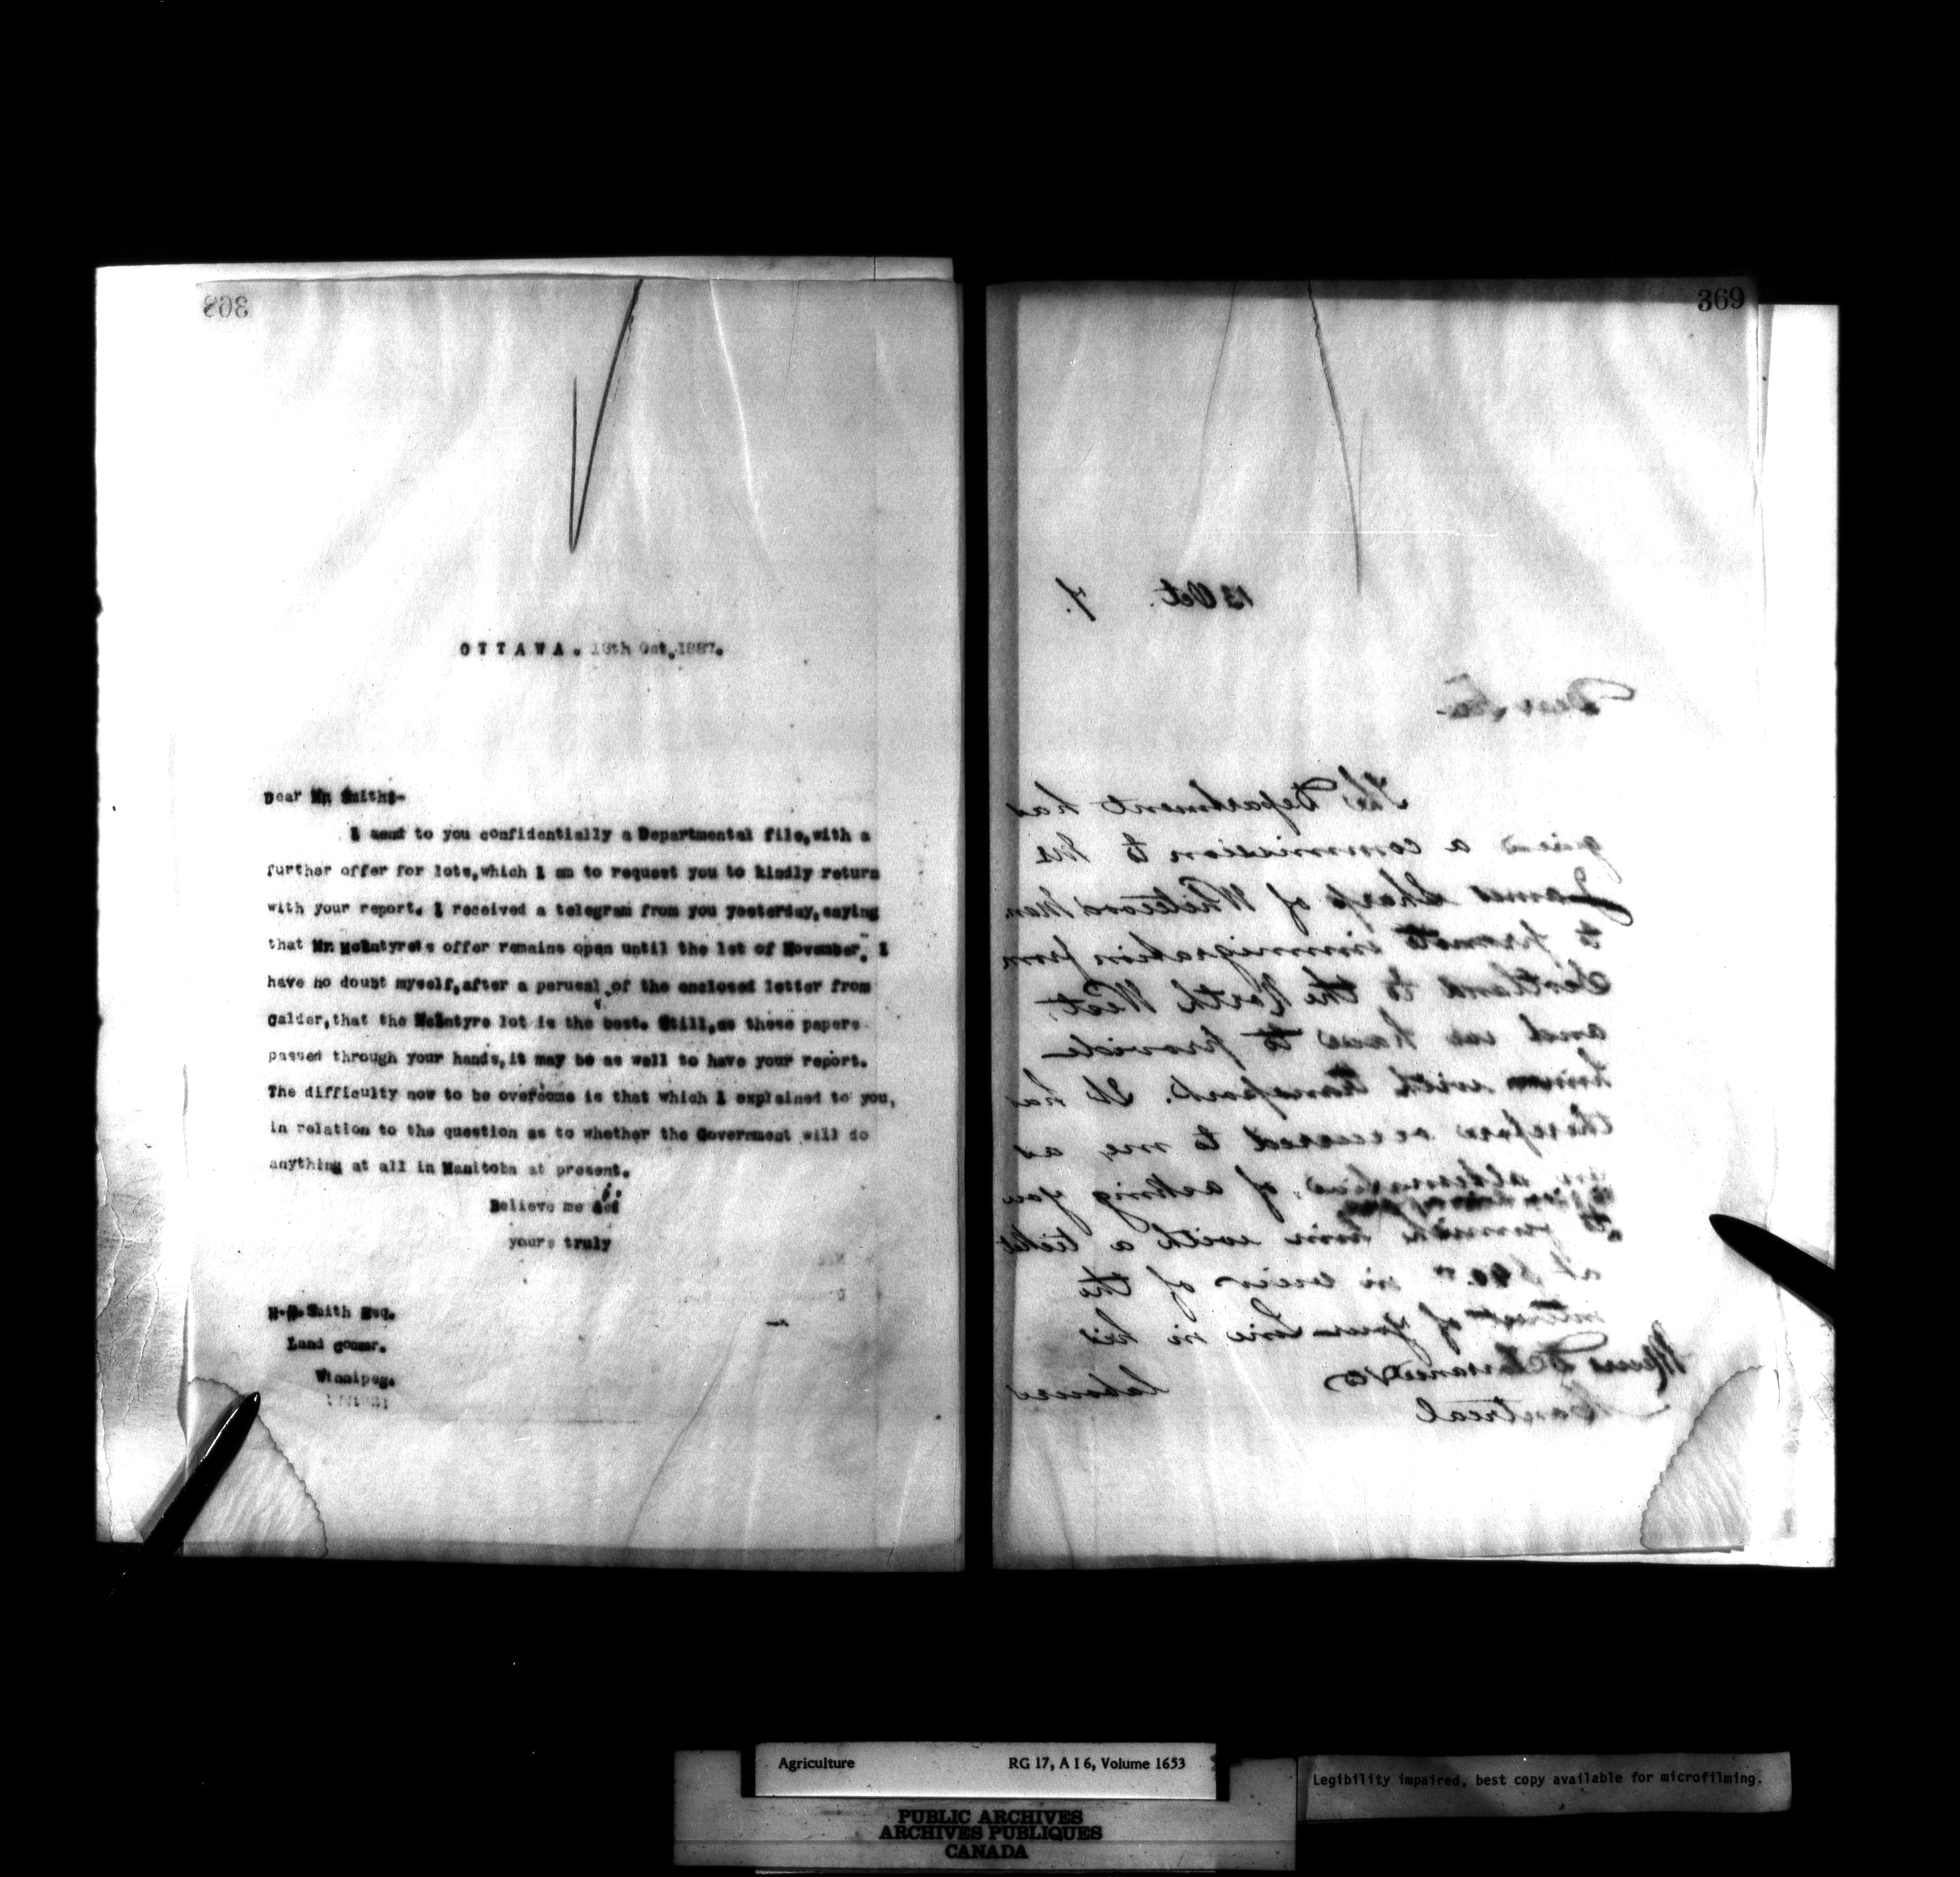 368
OTTAWA. 13th Oct, 1887.
Dear Mr. Smith:-
I send to you confidentially a Departmental file, with a
further offer for lots, which I am to request you to kindly return
with your report. I received a telegram from you yesterday, saying
that Mr. McIntyre's offer remains open until the 1st of November. I
have no doubt myself, after a perusal of the enclosed letter from
Calder, that the McIntyre lot is the best. Still, as these papers
passed through your hands, it may be as well to have your report.
The difficulty now to be overcome is that which I explained to you,
in relation to the question as to whether the Government will do
anything at all in Manitoba at present.
Believe me
yours truly
H.H. Smith Esq.
Land Commr.
Winnipeg.
369
13 Oct. 7.
Dear Sir
The Department has
given a commission to
James Sharp of Whitewood Man.
to promote immigration from
Scotland to the North West,
and we have to provide
him with transport. It has
therefore occurred to me, as
an alternative, of asking you
to furnish him with a ticket
at $40.00 in view of the
interest of your Line in his
labours
Messrs D. Torrance & Co
Montreal
Agriculture RG 17, A I 6, Volume 1653
Legibility impaired, best copy available for microfilming.
PUBLIC ARCHIVES
ARCHIVES PUBLIQUES
CANADA